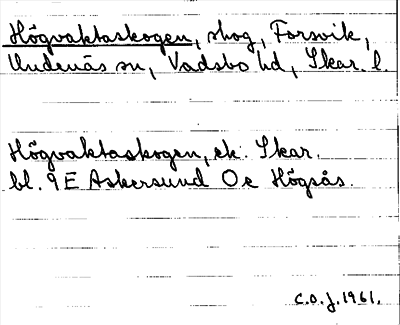 Högvaktaskogen, skog, Forsvik,
Undenäs sn, Vadsbo hd, Skar. l.
Högvaktaskogen, ek. Skar.
bl. 9E Askersund Oe Högsås.
C.O.J. 1961.